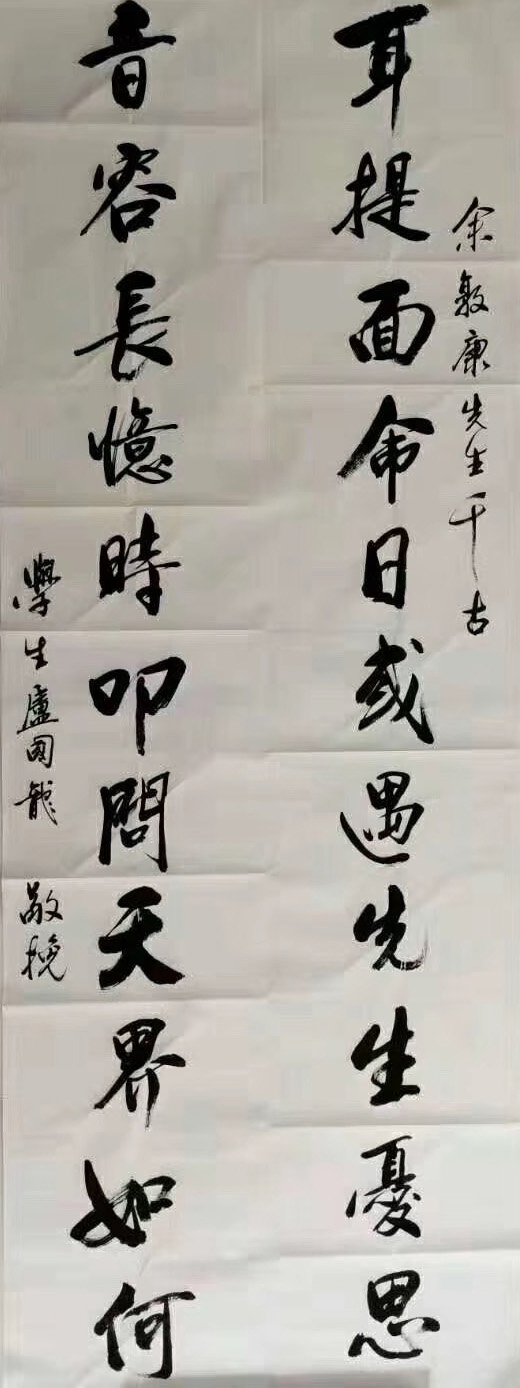 余敦康先生千古
耳提面命日或遇先生憂思
音容長憶時叩問天界如何
學生盧國龍敬挽